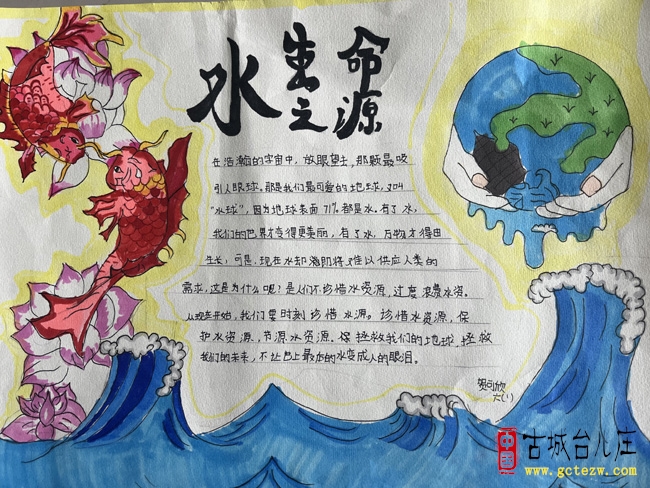 水 生命之源
在浩瀚的宇宙中，放眼望去，那颗最吸
引人眼球。那是我们最可爱的地球，又叫
"水球"，因为地球表面71%都是水。有了水，
我们的世界才变得更美丽，有了水，万物才得由
生长，可是，现在水却濒即将难以供应人类的
需求，这是为什么呢？是人们不珍惜水资源，过度浪费水资。
从现在开始，我们要时刻珍惜水源。珍惜水资源，保
护水资源，节源水资源。保拯救我们的地球，拯救
我们的未来，不让世上最后的水变成人的眼泪。
贺可欣
六(1)
中國 古城台儿庄
www.gctezw.com